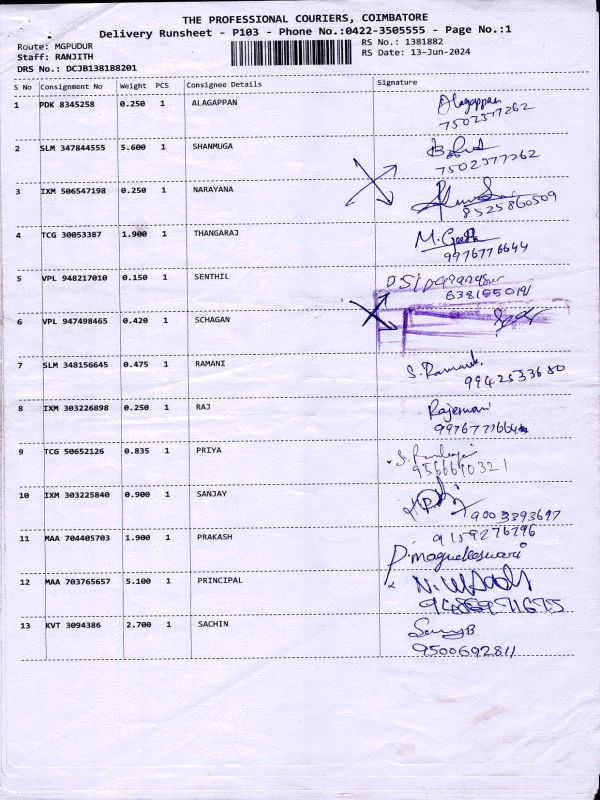 THE PROFESSIONAL COURIERS, COIMBATORE
Delivery Runsheet - P103 - Phone No.:0422-3505555 - Page No.:1
Route: MGPUDUR
RS No.: 1381882
Staff: RANJITH
RS Date: 13-Jun-2024
DRS No.: DCJB138188201
S No Consignment No Weight PCS Consignee Details Signature
1 PDK 8345258 0.250 1 ALAGAPPAN Alagappan
7502377262
2 SLM 347844555 5.600 1 SHANMUGA
7502377262
3 IXM 506547198 0.250 1 NARAYANA
8525860509
4 TCG 30053387 1.900 1 THANGARAJ M. Geetha
9976776644
5 VPL 948217010 0.150 1 SENTHIL
6 VPL 947498465 0.420 1 SCHAGAN
7 SLM 348156645 0.475 1 RAMANI S. Ramani
9942533680
8 IXM 303226898 0.250 1 RAJ Rajeswari
997677664
9 TCG 50652126 0.835 1 PRIYA
9566690321
10 IXM 303225840 0.900 1 SANJAY
9003393697
11 MAA 704405703 1.900 1 PRAKASH 9159276796
P. Magudeeswari
12 MAA 703765657 5.100 1 PRINCIPAL
13 KVT 3094386 2.700 1 SACHIN
9500692811